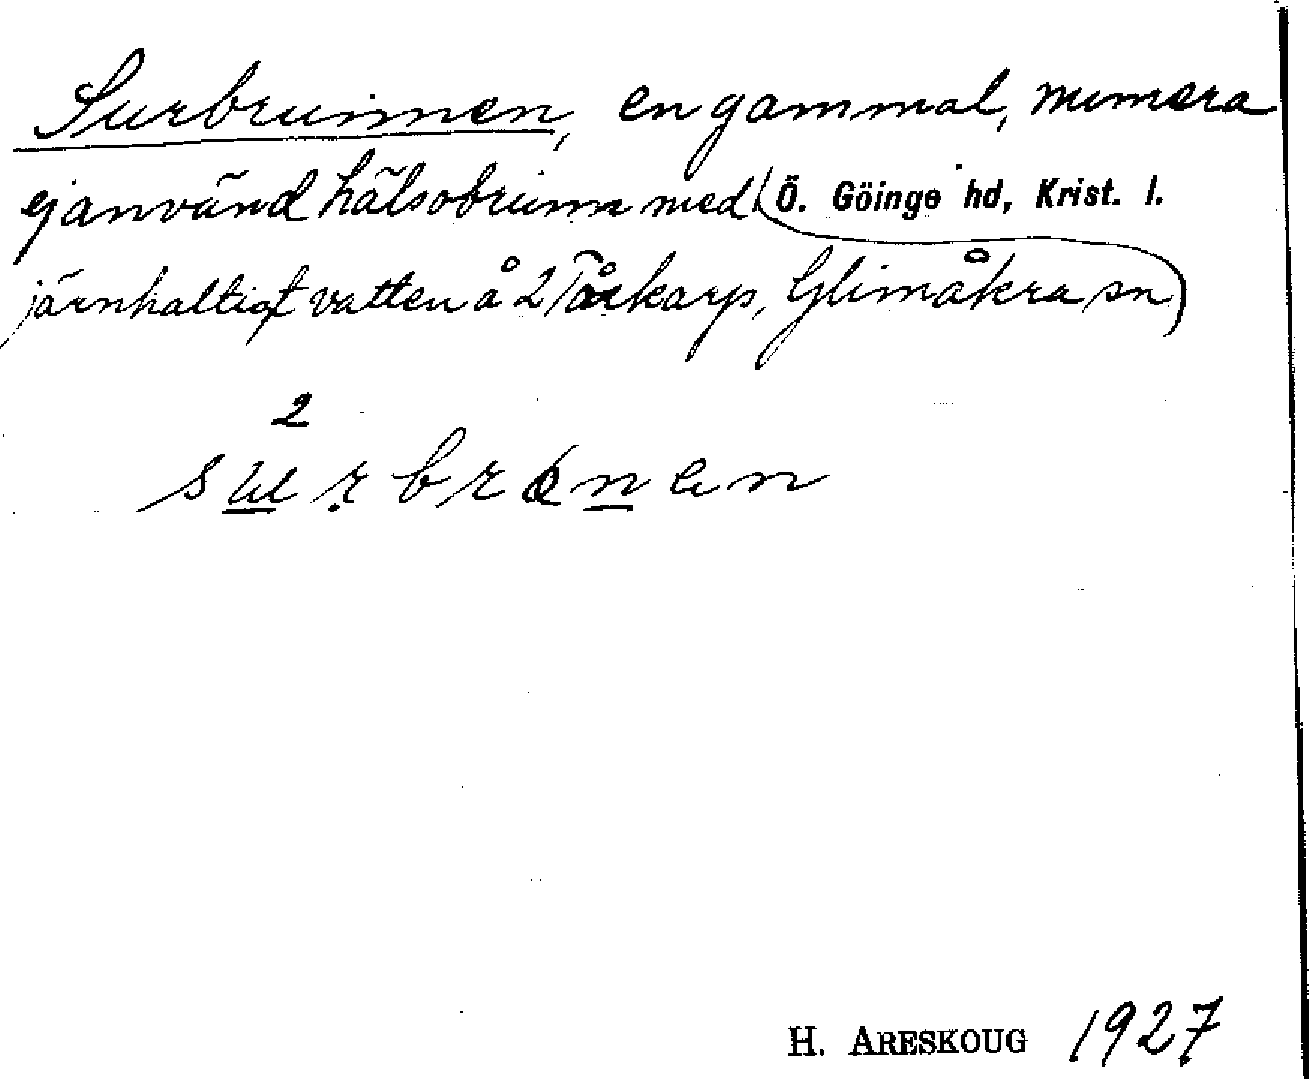 Surbrunnen, en gammal, numera
ej använd hälsobrunn med (Ö. Göinge hd, Krist. l.
järnhaltigt vatten å 2 Tårkarp, Glimåkra sn)
2
surbronen
H. ARESKOUG 1927